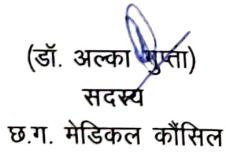 (डॉ. अल्का गुप्ता)
सदस्य
छ.ग. मेडिकल कौंसिल